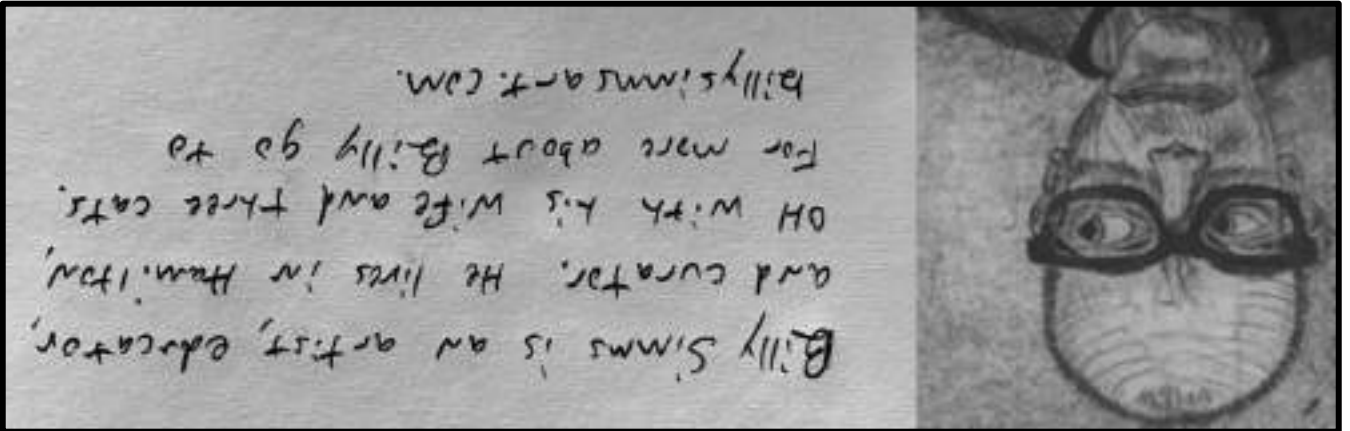 Billy Simms is an artist, educator,
and curator. He lives in Hamilton,
OH with his wife and three cats.
For more about Billy go to
billysimmsart.com.